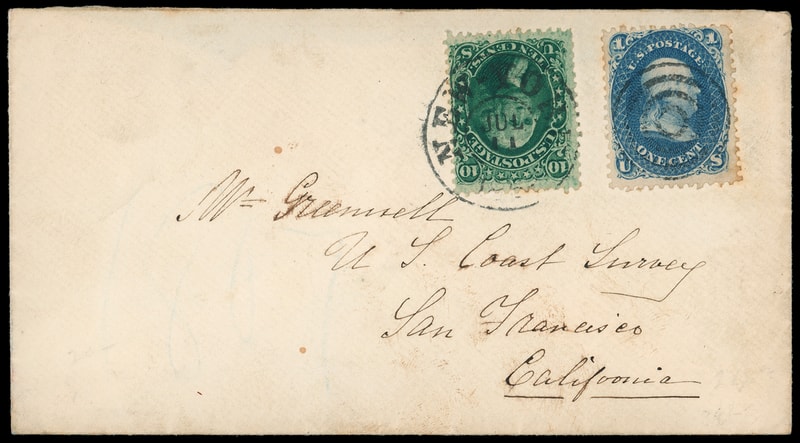 U S
TEN CENTS
U.S. POSTAGE
10 10
NEW YO
JUL
11
1 U.S. POSTAGE 1
ONE CENT
U S
Mr Greenwell
U S. Coast Survey
San Francisco
California